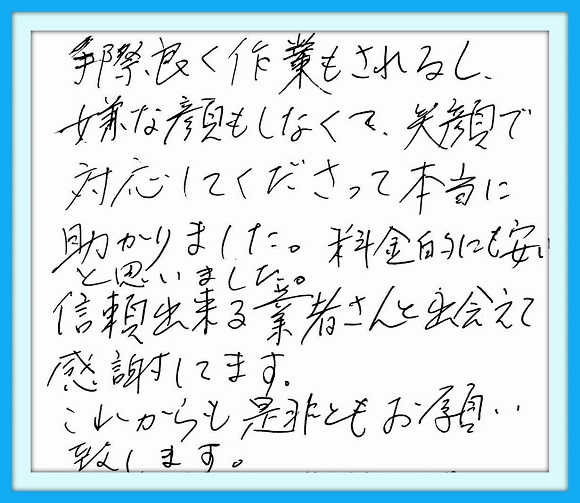 手際良く作業もされるし、
嫌な顔もしなくて、笑顔で
対応してくださって本当に
助かりました。料金的にも安い
と思いました。
信頼出来る業者さんと出会えて
感謝してます。
これからも是非ともお願い
致します。